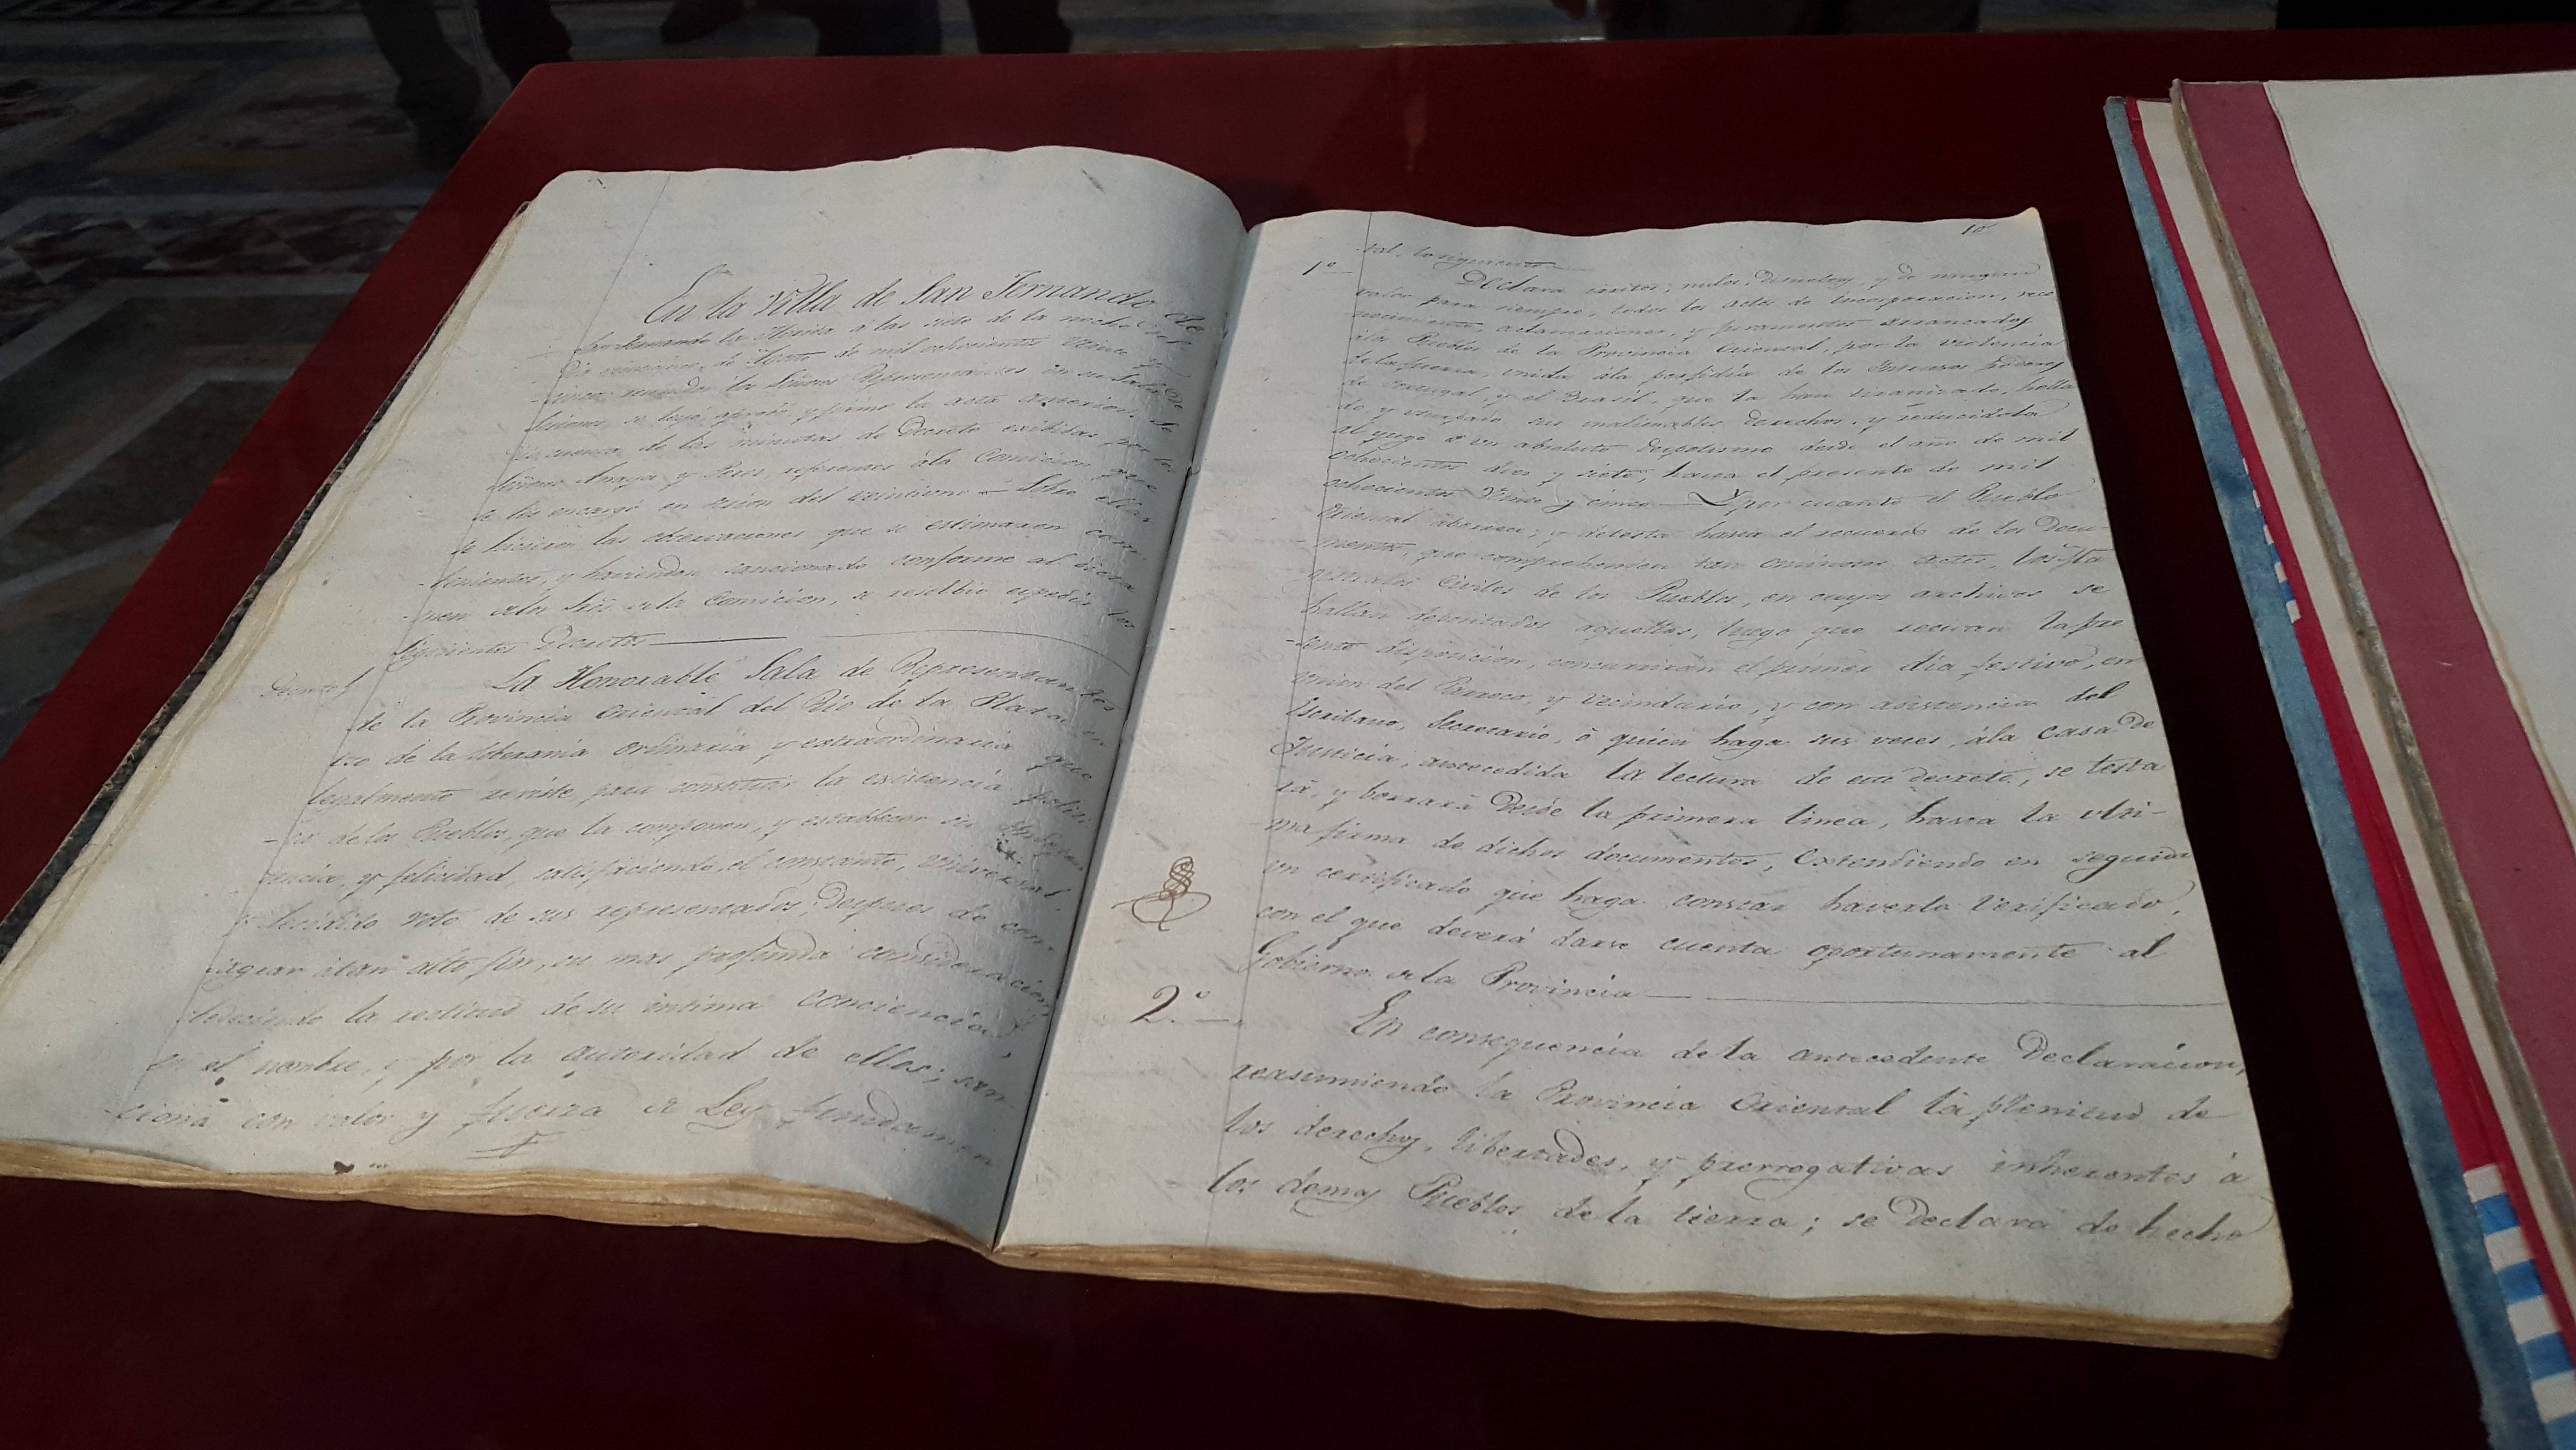 En la Villa de San Fernando de
la Florida á las siete de la noche del
dia veinticinco de Agosto de mil ochocientos veinte y
cinco reunidos los Señores Representantes en su Sala de
Seciones, se leyó, aprobó, y firmó la acta anterior. Se
dio cuenta de las minutas de Decreto exibidas por los
Señores Anaya y Perez, referentes á la Comicion que
se les encargó en sesion del veintiuno — Sobre ellas
se hicieron las observaciones que se estimaron com-
benientes, y haviendose sancionado conforme al dicta-
men de los SSres. de la Comicion, se resolbió expedir los
siguientes Decretos
Decreto
La Honorable Sala de Representantes
de la Provincia Oriental del Rio de la Plata en
uso de la Soberania ordinaria y extraordinaria que
legalmente reviste para constituir la existencia politi-
ca de los Pueblos, que la componen, y establecer su Independ-
encia, y felicidad, satisfaciendo, el constante, universal,
y decidido voto de sus representados; despues de con-
sagrar á tan alto fin, su mas profunda consideracion;
obedeciendo la rectitud de su intima conciencia;
en el nombre, y por la autoridad de ellos; san-
ciona con valor y fuerza de Ley fundamen-
10
tal, lo siguiente
1º Declara irritos, nulos, disueltos, y de ningun
valor para siempre, todos los actos de incorporacion, reco-
nocimientos, aclamaciones, y juramentos arrancados
á los Pueblos de la Provincia Oriental, por la violencia
de la fuerza, unida á la perfidia de los Intrusos Poderes
de Portugal y el Brasil, que la han tiranizado, holla-
do y usurpado sus inalienables derechos, y reducidola
al yugo de un absoluto despotismo desde el año de mil
ochocientos diez y siete, hasta el presente de mil
ochocientos veinte y cinco — Y por cuanto el Pueblo
Oriental aborrece, y detesta hasta el recuerdo de los Docu-
mentos, que comprehenden tan ominosos actos, los Ma-
gistrados Civiles de los Pueblos, en cuyos archivos se
hallan depositados aquellos, luego que recivan la pre-
sente disposicion, concurrirán el primer dia festivo, en
union del Parroco, y Vecindario, y con asistencia del
Escribano, Secretario, ó quien haga sus veces, á la casa de
Justicia, antecedida la lectura de este decreto, se testa-
rá, y borrará desde la primera linea, hasta la ulti-
ma firma de dichos documentos, extendiendo en seguida
un certificado que haga constar haverlo verificado,
con el que deverá darse cuenta oportunamente al
Gobierno de la Provincia
2º En consequencia de la antecedente Declaracion,
reasumiendo la Provincia Oriental la plenitud de
los derechos, libertades, y prerrogativas inherentes á
los demas Pueblos de la tierra; se Declara de hecho